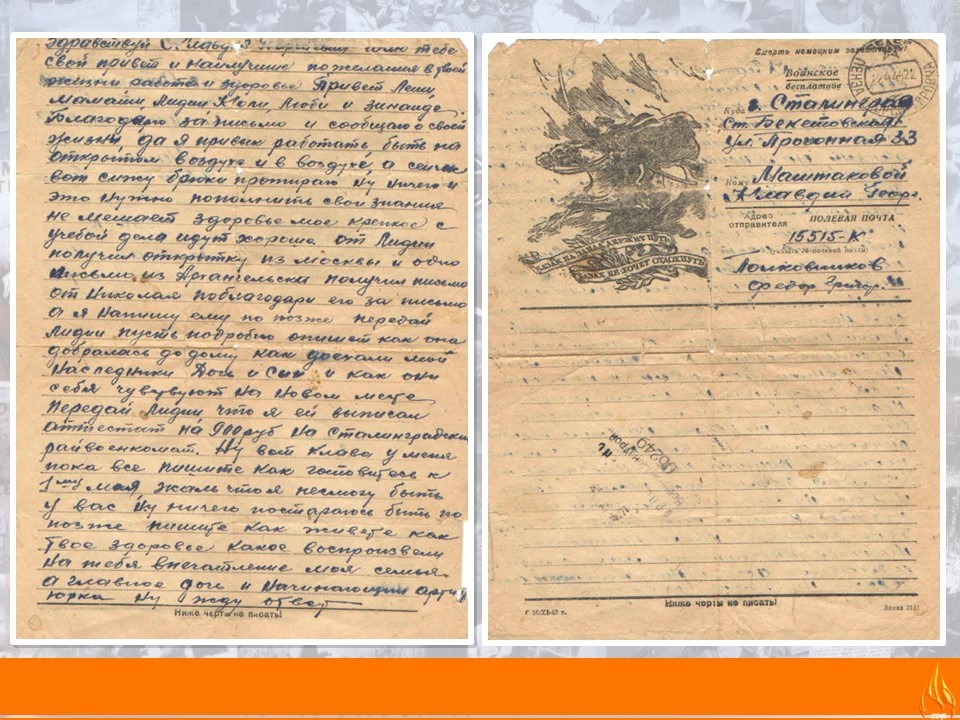 Здравствуй Клавдия шлю тебе
свой привет и наилучшие пожелания в твоей
жизни работе и здоровье Привет Леши
Мамаши Лидии Коли Любы и Зинаиде
Благодарю за письмо и сообщаю о своей
жизни да я привык работать быть на
открытом воздухе и в воздухе, а сейчас
вот сижу брюки протираю Ну ничего и
это нужно пополнить свои знание
не мешает здоровье мое крепкое с
учебой дела идут хорошо от Лидии
получил открытку из Москвы и одно
письмо из Архангельска получил письмо
от Николая поблагодари его за письмо
а я напишу ему по позже передай
Лидии пусть подробно опишет как она
добралась до дому как доехали мой
наследники дочь и сын и как они
себя чувствуют на новом месте
Передай Лидии что я ей выписал
аттестат на 900 руб на Сталинградский
райвоенкомат. Ну вот Клава у меня
пока все пишите как готовитесь к
1му мая жаль что я несмогу быть
у вас Ну ничего постараюсь быть по
позже пишите как живете как
твое здоровье какое воспроизвели
на тебя впечатление моя семья
а главное дочь и начинающий
Юрка Ну жду ответ
Ниже черты не писать!
Смерть немецким захватчикам!
Воинское
бесплатное
Куда г. Сталинград
ст. Бекетовская
ул. Прогонная 33
Кому Маштаковой
Клавдии Георг.
Адрес
отправителя
ПОЛЕВАЯ ПОЧТА
15515-К
Федор Григор.
КАЗАК НА ЗАПАД ДЕРЖИТ ПУТЬ
КАЗАК НЕ ХОЧЕТ ОТДОХНУТЬ
Ниже черты не писать!